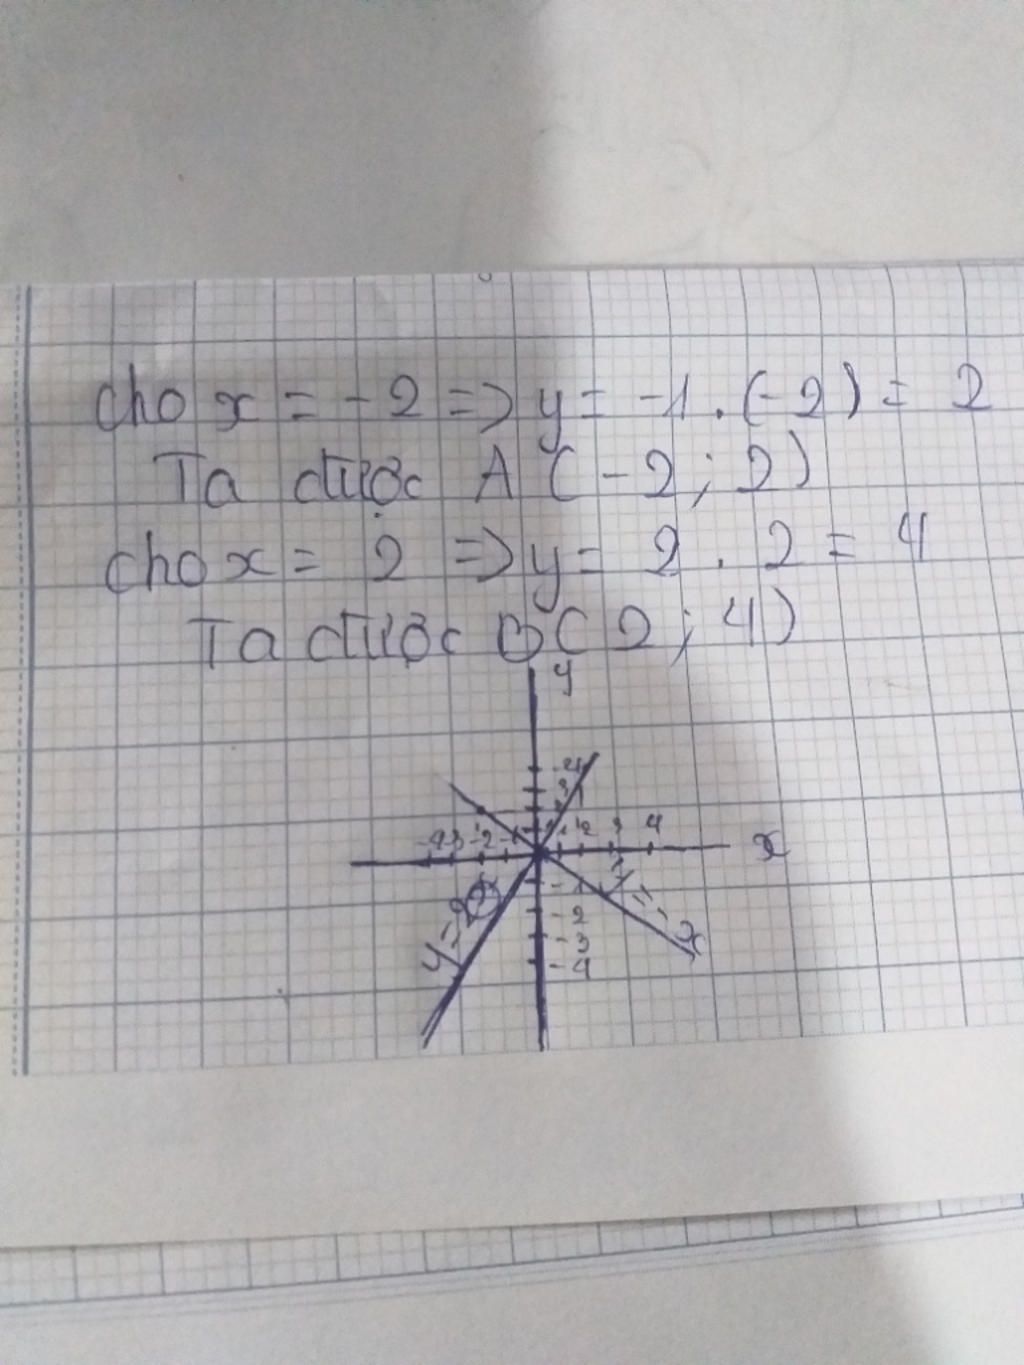 cho x = -2 => y = -1 . (-2) = 2
Ta được A (-2 ; 2)
cho x = 2 => y = 2 . 2 = 4
Ta được B (2 ; 4)
y
4
3
-4 -3 -2 -1 1 2 3 4 x
-1
-2
-3
-4
y = 2x
y = -x